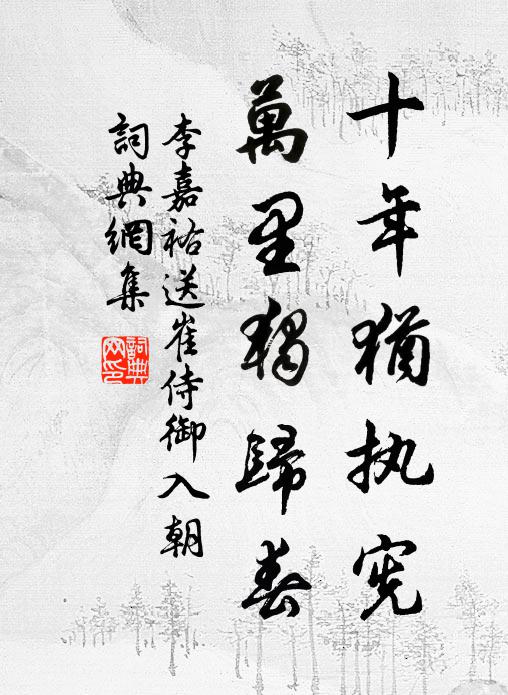 十年猶执宪
萬里獨歸春
李嘉祐送崔侍御入朝
詞典網集
詞典網印